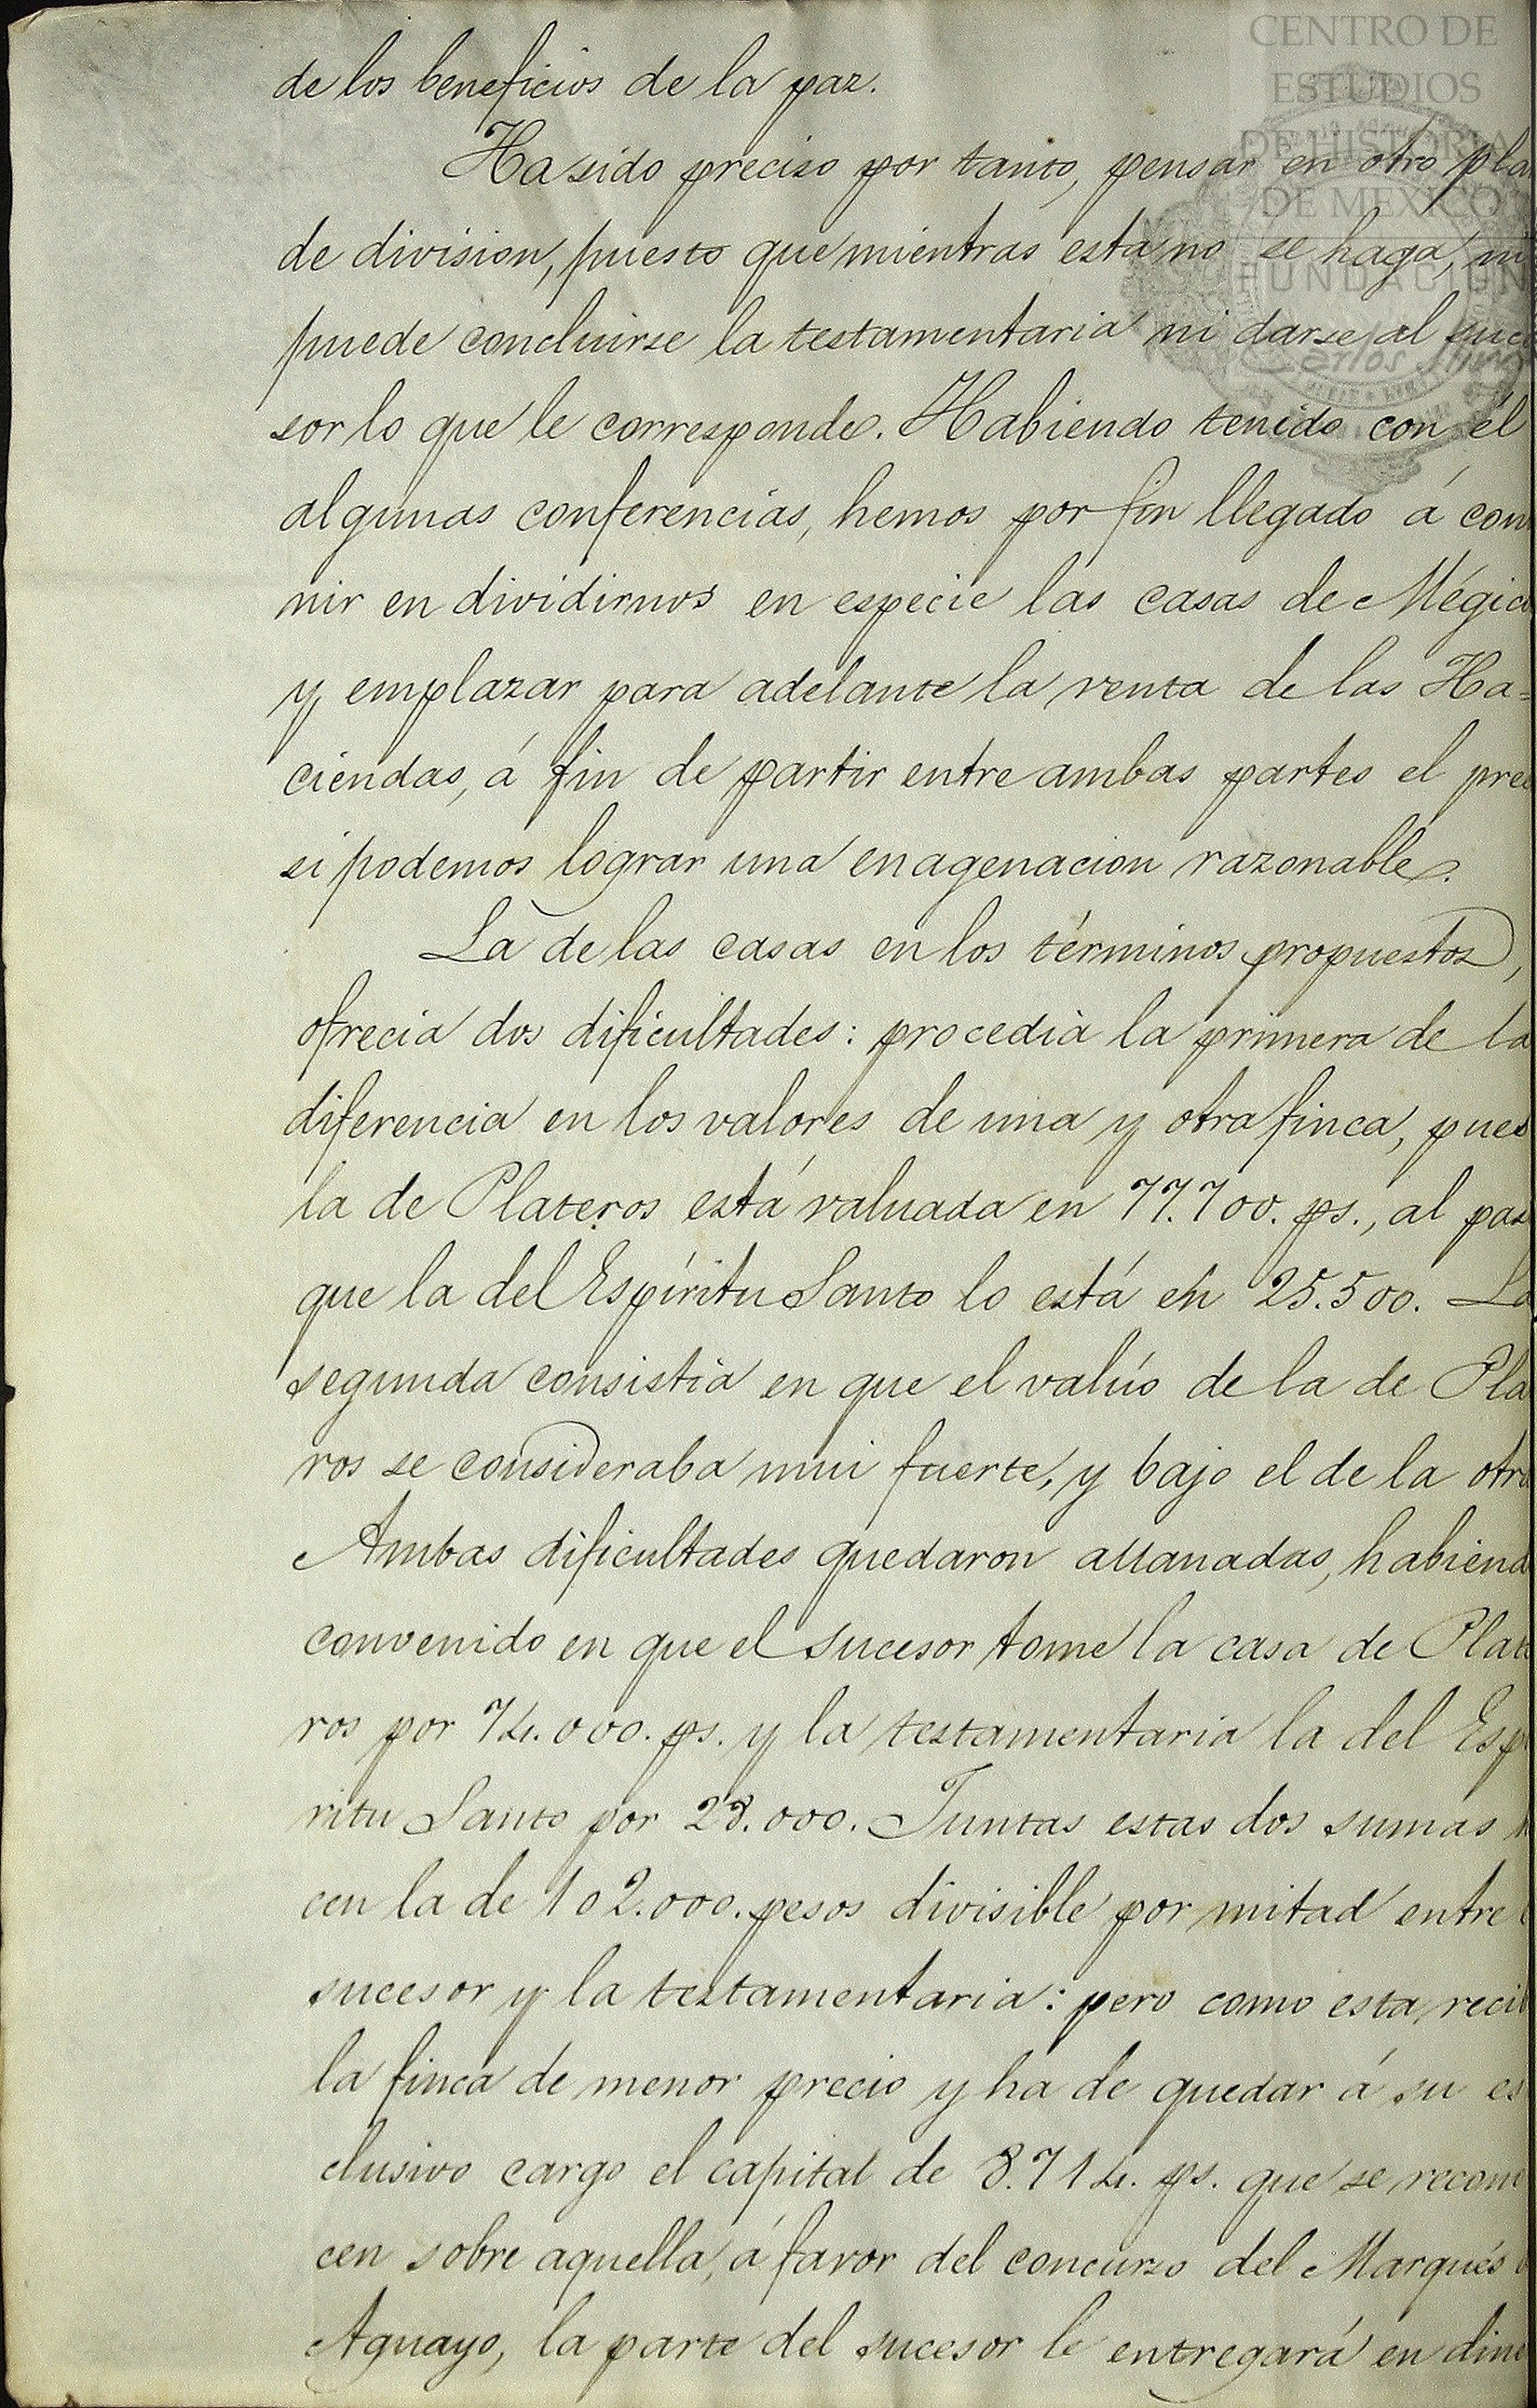 CENTRO DE
ESTUDIOS
DE HISTORIA
DE MEXICO
FUNDACION
Carlos Slim
de los beneficios de la paz.
Ha sido preciso por tanto, pensar en otro pla
de division, puesto que mientras esta no se haga, ni
puede concluirse la testamentaria ni darse al suce
sor lo que le corresponde. Habiendo tenido con él
algunas conferencias, hemos por fin llegado á con
nir en dividirnos en especie las casas de Mégic
y emplazar para adelante la venta de las Ha=
ciendas, á fin de partir entre ambas partes el pre
si podemos lograr una enagenacion razonable.
La de las casas en los términos propuestos,
ofrecia dos dificultades: procedia la primera de la
diferencia en los valores de una y otra finca, pues
la de Plateros está valuada en 77.700. ps., al pas
que la del Espíritu Santo lo está en 25.500. La
segunda consistia en que el valúo de la de Pla
ros se consideraba mui fuerte, y bajo el de la otra
Ambas dificultades quedaron allanadas, habiend
convenido en que el sucesor tome la casa de Plate
ros por 74.000. ps. y la testamentaria la del Esp
ritu Santo por 28.000. Juntas estas dos sumas
cen la de 102.000. pesos divisible por mitad entre
sucesor y la testamentaria: pero como esta recib
la finca de menor precio y ha de quedar á su es
clusivo cargo el capital de 8.714. ps. que se recono
cen sobre aquella, á favor del concurso del Marqués
Aguayo, la parte del sucesor le entregará en dine